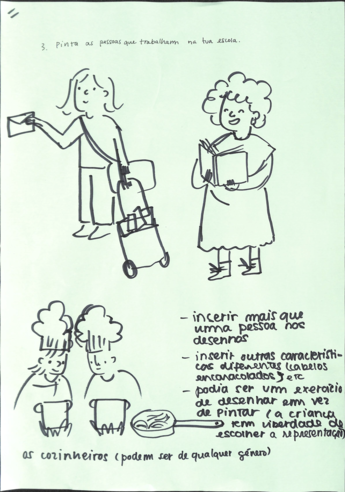 3. Pinta as pessoas que trabalham na tua escola.
- inserir mais que
uma pessoa nos
desenhos
- inserir outras característi-
cas diferentes (cabelos
encaracolados) etc
- podia ser um exercício
de desenhar em vez
de pintar (a criança
tem liberdade de
escolher a representação)
os cozinheiros (podem ser de qualquer género)